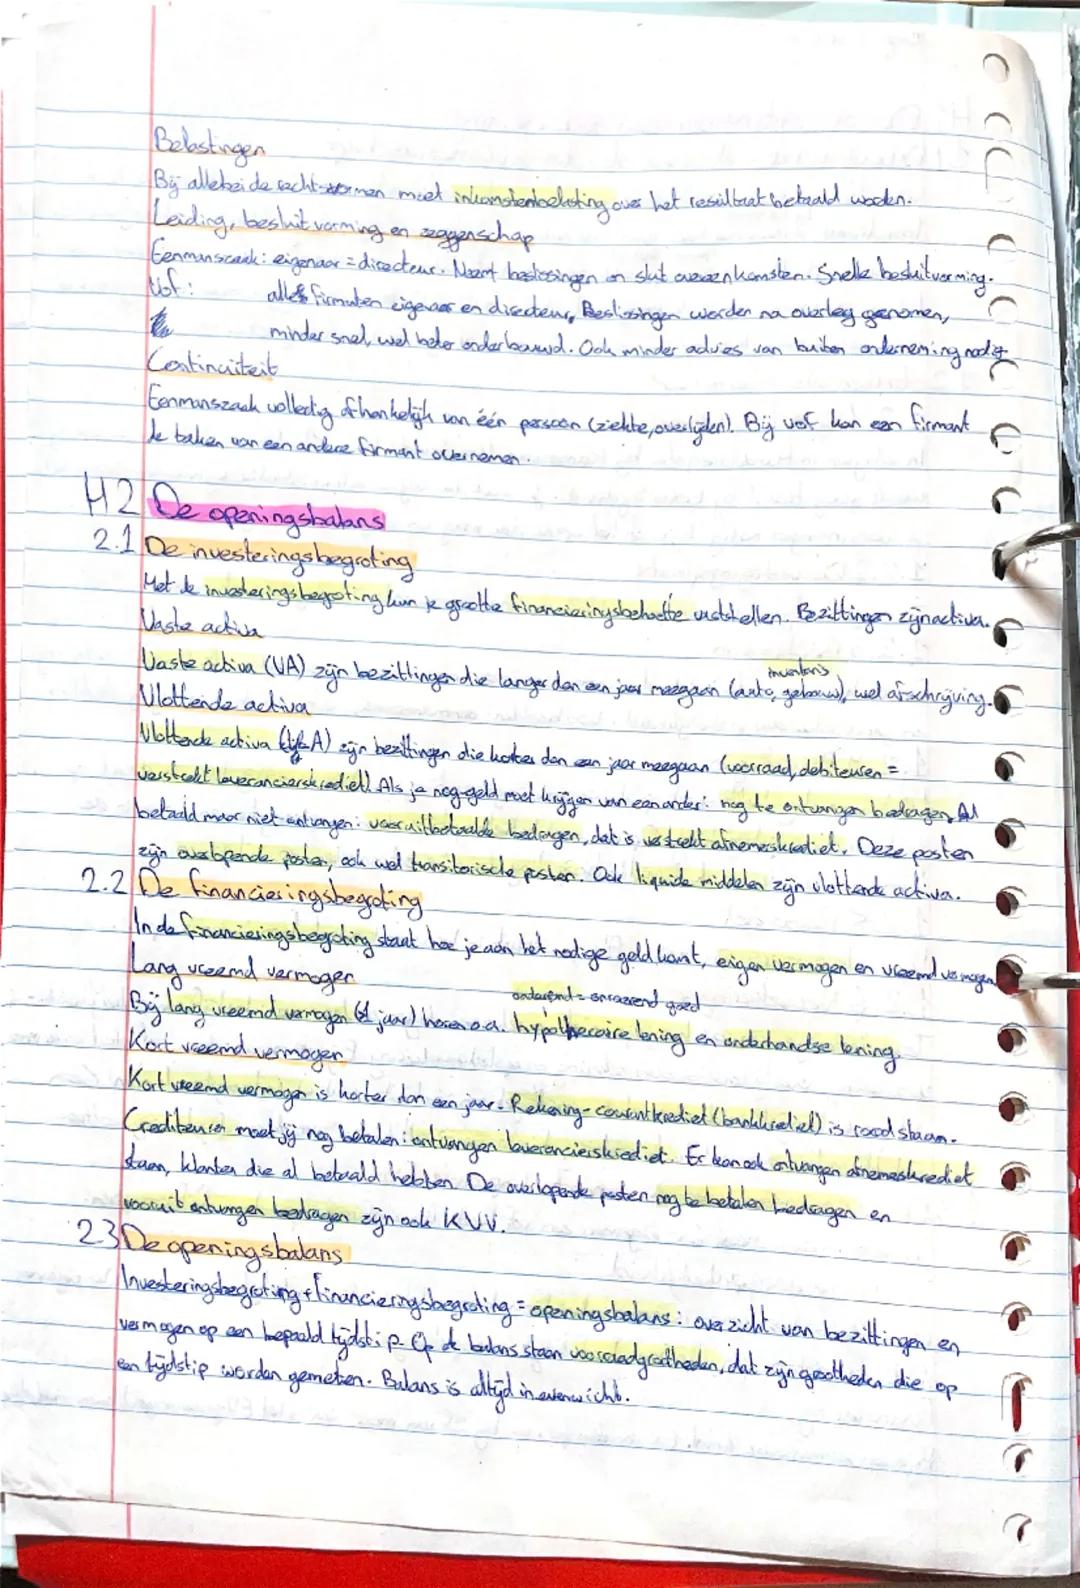 Belastingen
Bij allebei de rechtsvormen moet inkomstenbelasting over het resultaat betaald worden.
Leiding, besluitvorming en zeggenschap
Eenmanszaak: eigenaar = directeur. Neemt beslissingen en sluit overeenkomsten. Snelle besluitvorming.
Vof: alle firmanten eigenaar en directeur, Beslissingen worden na overleg genomen,
minder snel, wel beter onderbouwd. Ook minder advies van buiten onderneming nodig
Continuïteit
Eenmanszaak volledig afhankelijk van één persoon (ziekte, overlijden). Bij vof kan een firmant
de taken van een andere firmant overnemen.
H2 De openingsbalans
2.1 De investeringsbegroting
Met de investeringsbegroting kun je grootte financieringsbehoefte vaststellen. Bezittingen zijn activa.
Vaste activa
inventaris
Vaste activa (VA) zijn bezittingen die langer dan een jaar meegaan (auto, gebouw), wel afschrijving.
Vlottende activa
Vlottende activa zijn bezittingen die korter dan een jaar meegaan (voorraad, debiteuren =
verstrekt leverancierskrediet). Als je nog geld moet krijgen van een ander: nog te ontvangen bedragen. Al
betaald maar niet ontvangen: vooruitbetaalde bedragen, dat is verstrekt afnemerskrediet. Deze posten
zijn overlopende posten, ook wel transitorische posten. Ook liquide middelen zijn vlottende activa.
2.2 De financieringsbegroting
In de financieringsbegroting staat hoe je aan het nodige geld komt, eigen vermogen en vreemd vermogen
Lang vreemd vermogen
onderpand = onroerend goed
Bij lang vreemd vermogen (>1 jaar) horen o.a. hypothecaire lening en onderhandse lening.
Kort vreemd vermogen
Kort vreemd vermogen is korter dan een jaar. Rekening-courantkrediet (bankkrediet) is rood staan.
Crediteuren moet jij nog betalen: ontvangen leverancierskrediet. Er kan ook ontvangen afnemerskrediet
staan, klanten die al betaald hebben. De overlopende posten nog te betalen bedragen en
vooruit ontvangen bedragen zijn ook KVV.
2.3 De openingsbalans
Investeringsbegroting + financieringsbegroting = openingsbalans: overzicht van bezittingen en
vermogen op een bepaald tijdstip. Op de balans staan voorraadgrootheden, dat zijn grootheden die op
een tijdstip worden gemeten. Balans is altijd in evenwicht.